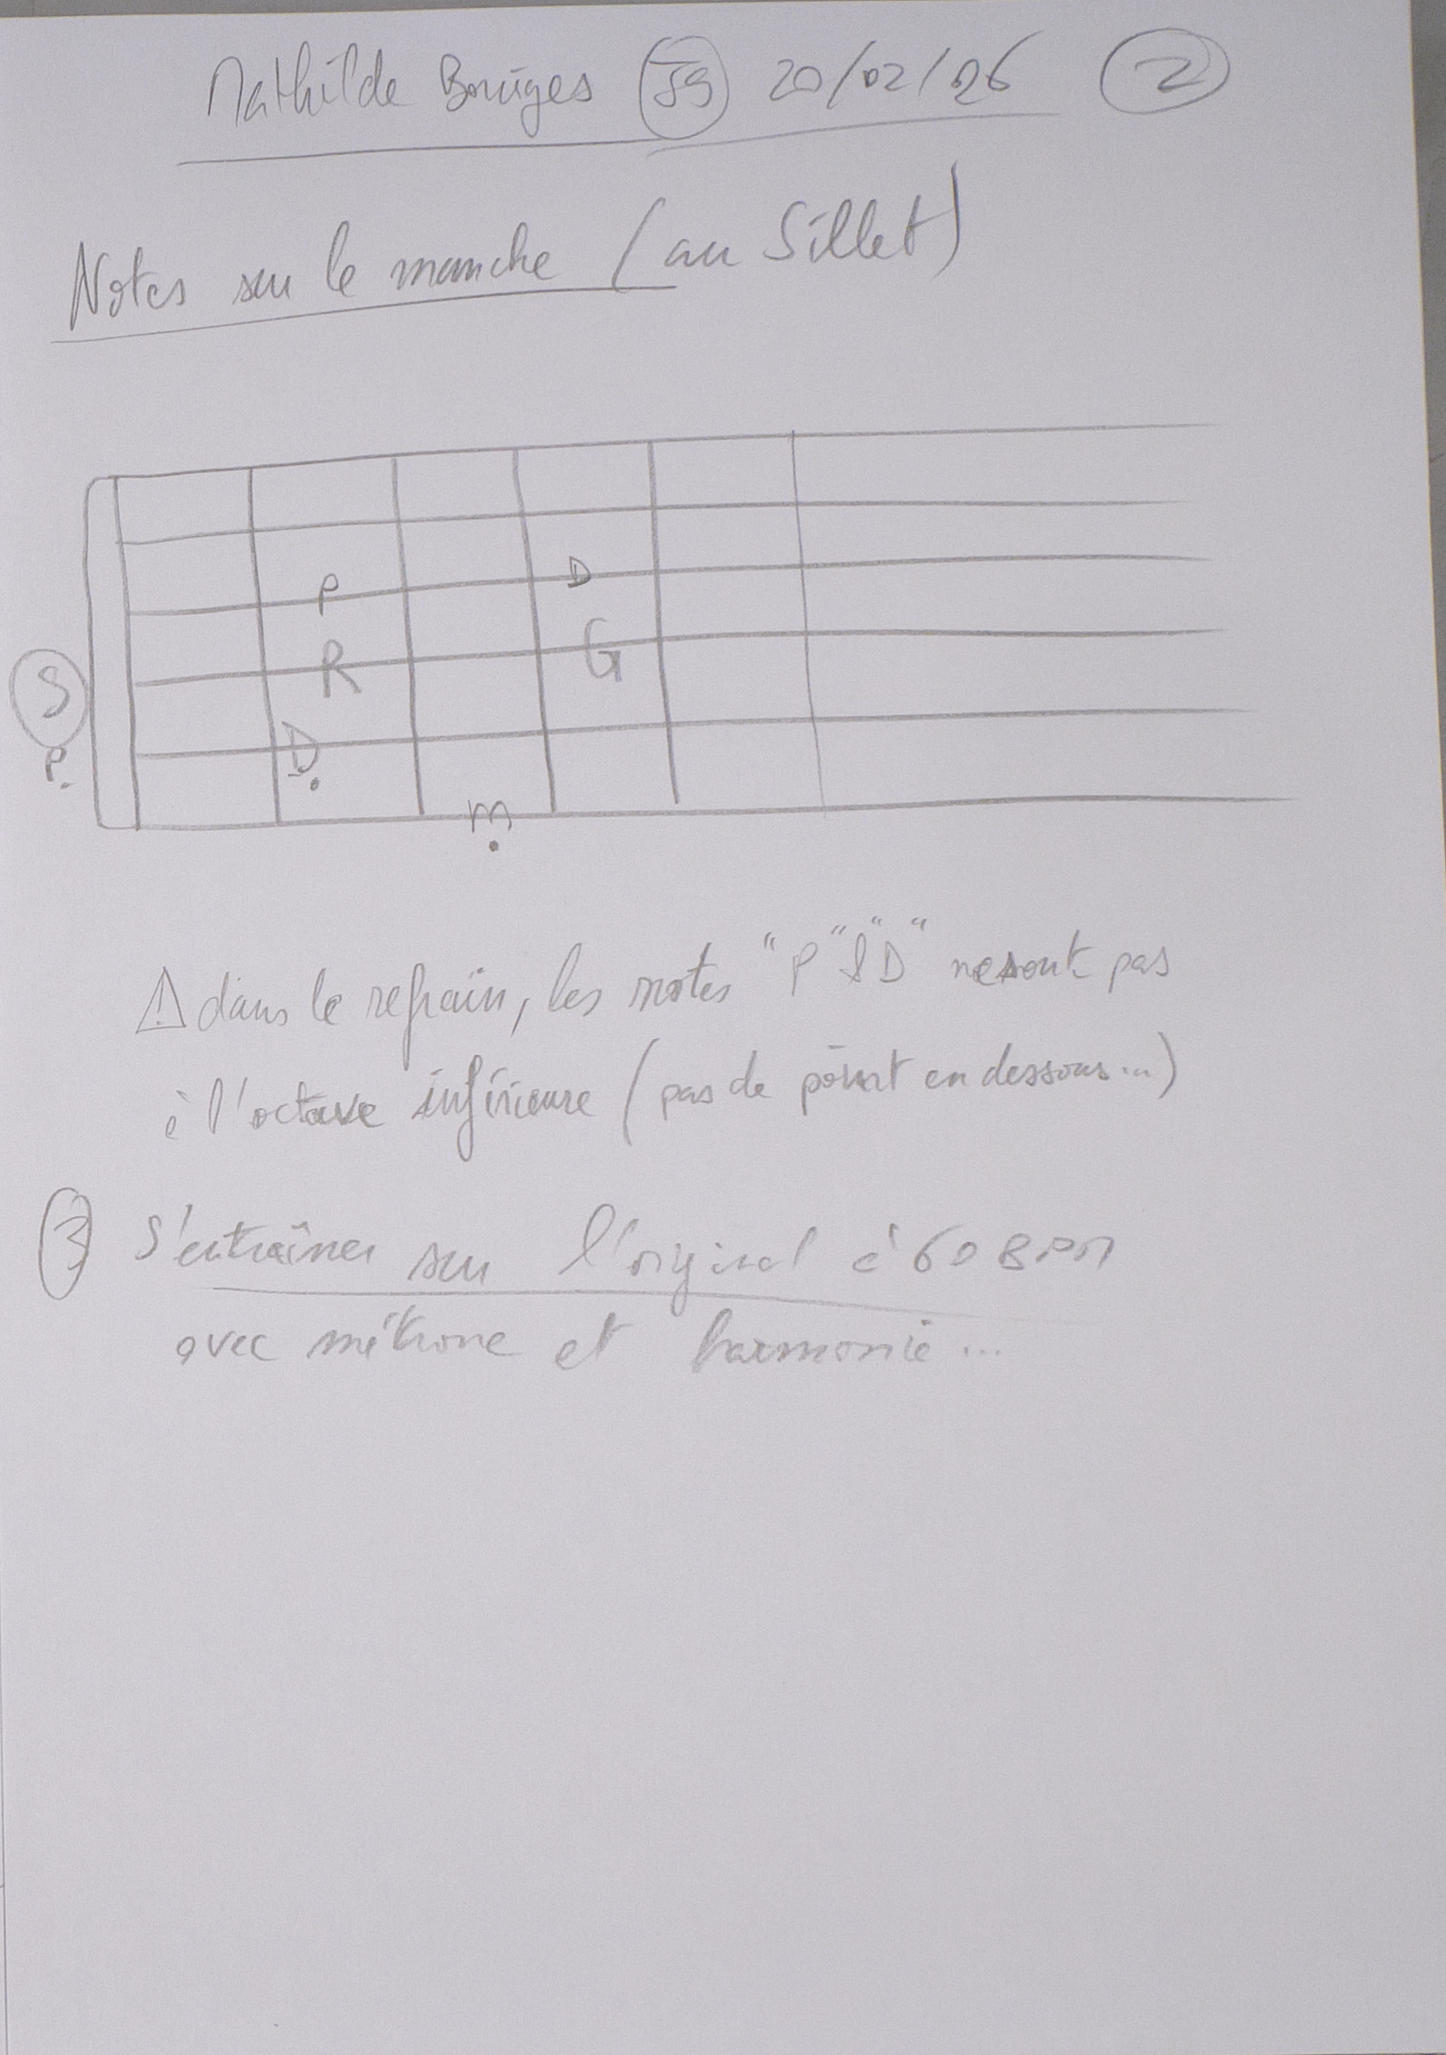 Mathilde Bouiges 59 20/02/26 2
Notes sur le manche (au Sillet)
P D
S R G
P. D.
m.
⚠ dans le refrain, les notes "P" & "D" ne sont pas
à l'octave inférieure (pas de point en dessous...)
3 S'entraîner sur l'original à 60 BPM
avec métrone et harmonie...